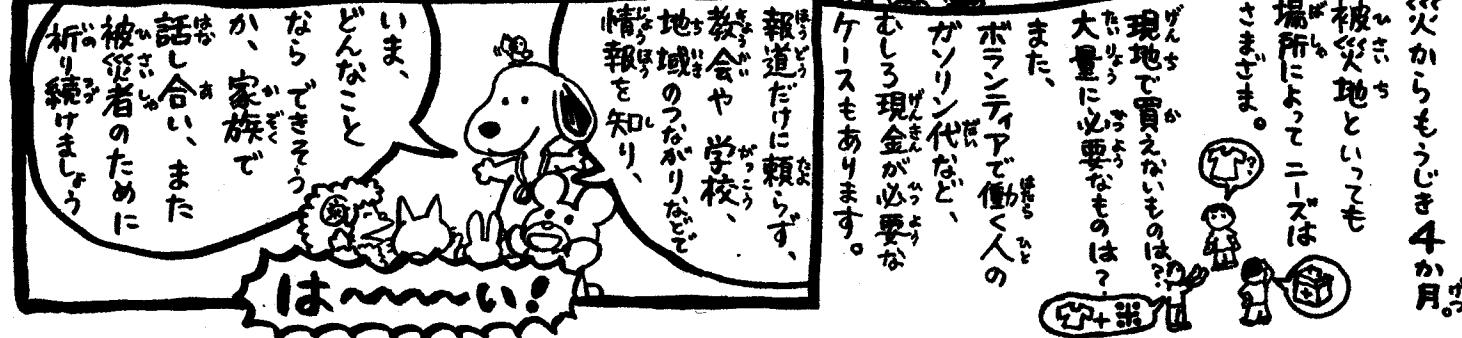 災からもうじき4か月。
被災地といっても
場所によって ニーズは
さまざま。
現地で買えないものは?
大量に必要なものは?
また、
ボランティアで働く人の
ガソリン代など、
むしろ現金が必要な
ケースもあります。
?
+米
報道だけに頼らず、
教会や 学校、
地域のつながりなどで
情報を知り、
いま、
どんなこと
なら できそう
か、家族で
話し合い、また
被災者のために
祈り続けましょう
は〜〜〜〜い!